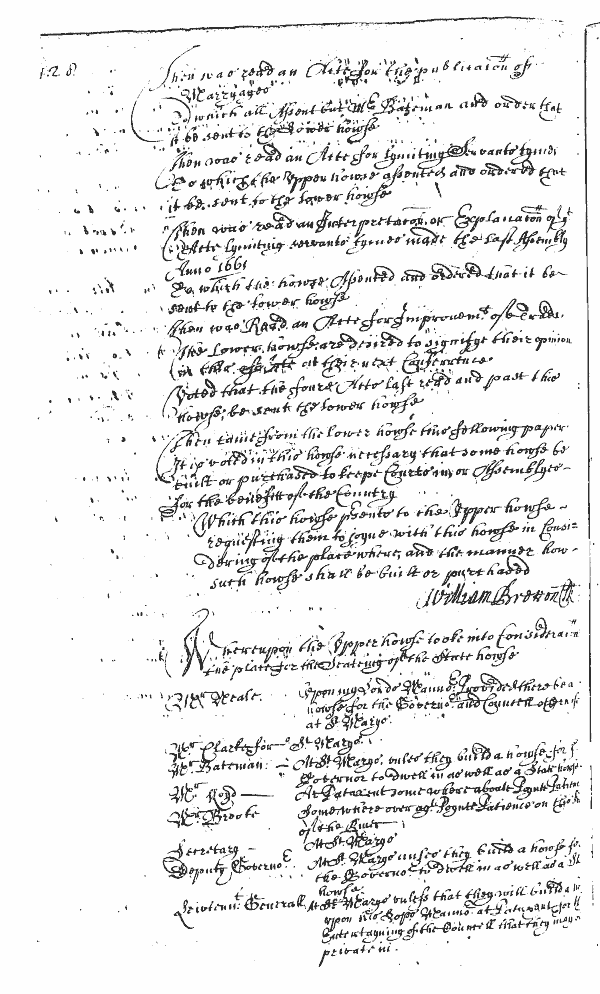 128
Then was read an Acte for the publicacon of
Marryages
To which all Assent but Mr Bateman and order that
it be sent to the lower howse
Then was read an Acte for Lymiting Servants tymes
To which the Upper howse assented and ordered that
it be sent to the lower howse
Then was read an Interpretacon or Explanacon of ye
Acte Lymiting servants tymes made the last Assembly
Anno 1661
To which the howse Assented and ordered that it be
sent to the lower howse
Then was Read an Acte for Improvemt of
The Lower howse are desired to signifye their opinion
in this at their next Conference
Voted that the foure Acts last read and past this
howse be sent the lower howse
Then came from the lower howse this following paper
It is voted in this howse necessary that some howse be
built or purchased to keepe Courts in, or Assemblyes
for the benefitt of the Country
Which this howse psents to the Upper howse
requesting them to joyne with this howse in Consi-
dering of the place where, and the manner how
such howse shall be built or purchased
William Bretton
Whereupon the Upper howse tooke into Consideracon
the place for the Seateing of the State howse
Mr Neale. Upon my Lords Mannor Provided there be a
howse for the Governor and Councell otherwise
at St Maryes
Mr Clarke for St Maryes
Mr Bateman At St Maryes, unles they build a howse for
Governor to dwell in as well as a State howse
Mr At Patuxent some where about Poynt Patience
Mr Brooke Somewhere over agt Poynte Patience on this
of the River
Secretary At St Maryes
Deputy Governor At St Maryes unles they build a howse for
the Governor to dwell in as well as a
howse
Leivtennt Generall At St Maryes unless that they will build a
upon his Lopps Mannor at Patuxent for
Entertayning of the Councell that they may
private in.